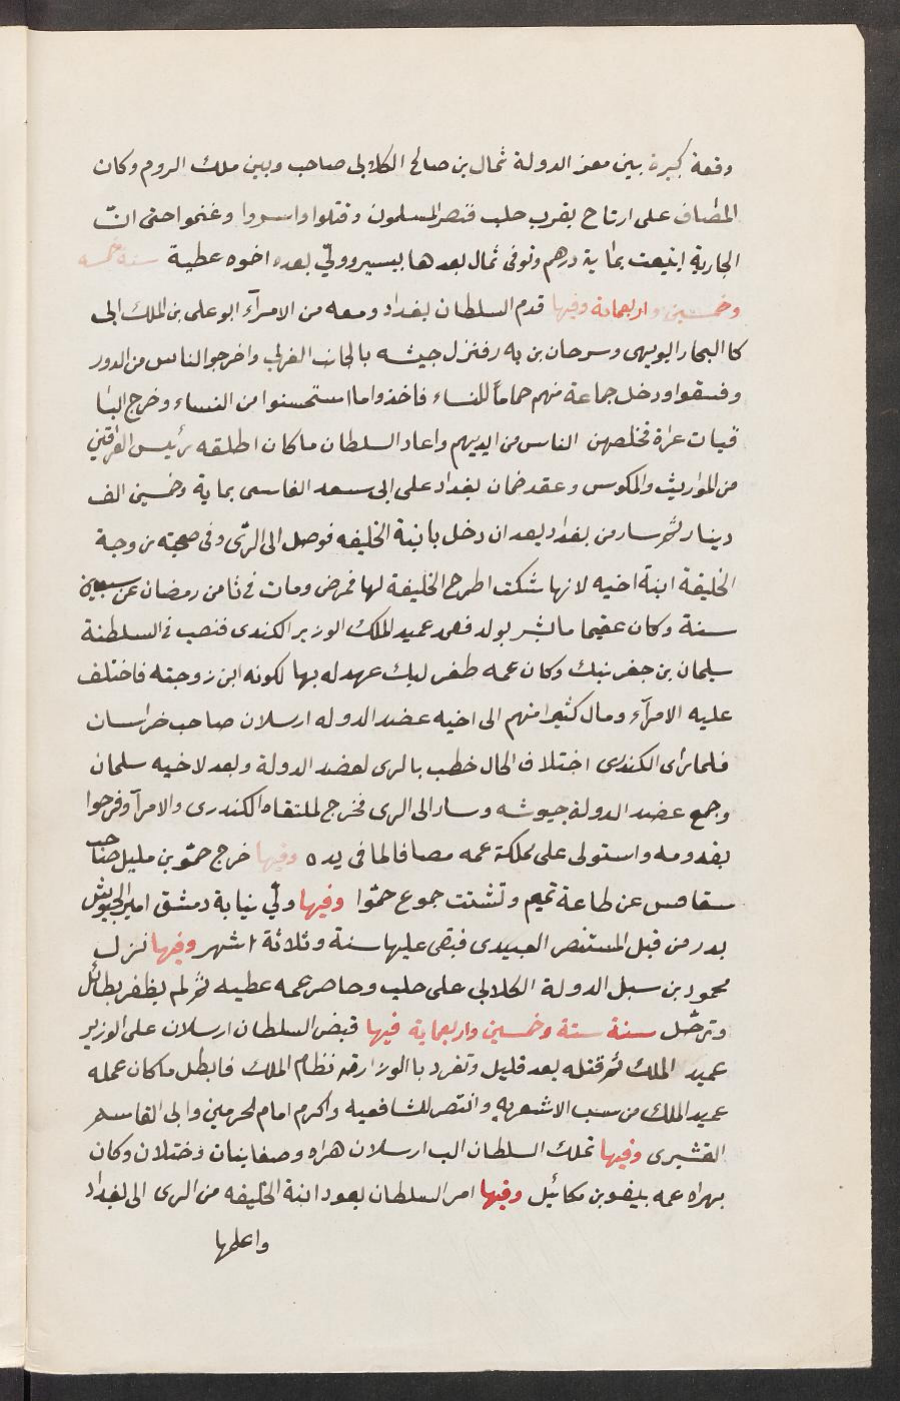 وقعة كبيرة بين معز الدولة ثمال بن صالح الكلابى صاحب وبين ملك الروم وكان
المصاف على ارتاح بقرب حلب فنصر المسلمون وقتلوا واسروا وغنموا حتى انّ
الجارية ابتيعت بماية درهم وتوفى ثمال بعدها بيسير وولّي بعده اخوه عطية سنة خمسه
وخمسين واربعماية وفيها قدم السلطان بغداد ومعه من الامرآء ابو على بن الملك ابى
كاليجار البويهى وسرحان بن فنزل جيشه بالجانب الغربى واخرجوا الناس من الدور
وفسقوا ودخل جماعة منهم حماماً للنساء فاخذوا ما استحسنوا من النساء وخرج البا
قيات عراة فخلصهن الناس من ايديهم واعاد السلطان ما كان اطلقه رئيس العراقين
من المواريث والمكوس وعقد ضمان بغداد على ابى سعد الفاسى بماية وخمسين الف
دينار ثم سار من بغداد بعد ان دخل بابنة الخليفه فوصل الى الرّى وفى صحبته زوجة
الخليفة ابنة اخيه لانها شكت اطرح الخليفة لها فمرض ومات فى ثامن رمضان عن سبعين
سنة وكان عقيما ما بشر بولد فعمد عميد الملك الوزير الكندى فنصب فى السلطنة
سليمان بن جفر نبك وكان عمه طغر لبك عهد له بها لكونه ابن زوجته فاختلف
عليه الامرآء ومال كثيرا منهم الى اخيه عضد الدوله ارسلان صاحب خراسان
فلما رأى الكندى اختلاف الحال خطب بالرى لعضد الدولة وبعد لاخيه سلمان
وجمع عضد الدولة جيوشه وسار الى الرى فخرج لملتقاه الكندرى والامرآ وفرحوا
بقدومه واستولى على مملكة عمه مضافا لما فى يده وفيها خرج حمّو بن مليل صاحب
سفاقس عن طاعة تميم وتشتت جموع حمّوا وفيها ولّي نيابة دمشق امير الجيوش
بدر من قبل المستنصر العبيدى فبقى عليها سنة وثلاثة اشهر وفيها نزل
محمود بن سبل الدولة الكلابى على حلب وحاصر عمه عطيه ثم لم يظفر بطائل
وترحّل سنة ستة وخمسين واربعماية فيها قبض السلطان ارسلان على الوزير
عميد الملك ثم قتله بعد قليل وتفرد با الوزارة نظام الملك فابطل ما كان عمله
عميد الملك من سب الاشعريه وانتصر للشافعيه واكرم امام الحرمين وابى القاسم
القشيرى وفيها تملك السلطان الب ارسلان هراه وصغانيات وختلان وكان
بهراه عمه بيغو بن مكائيل وفيها امر السلطان بعود ابنة الخليفه من الرى الى بغداد
واعلمها